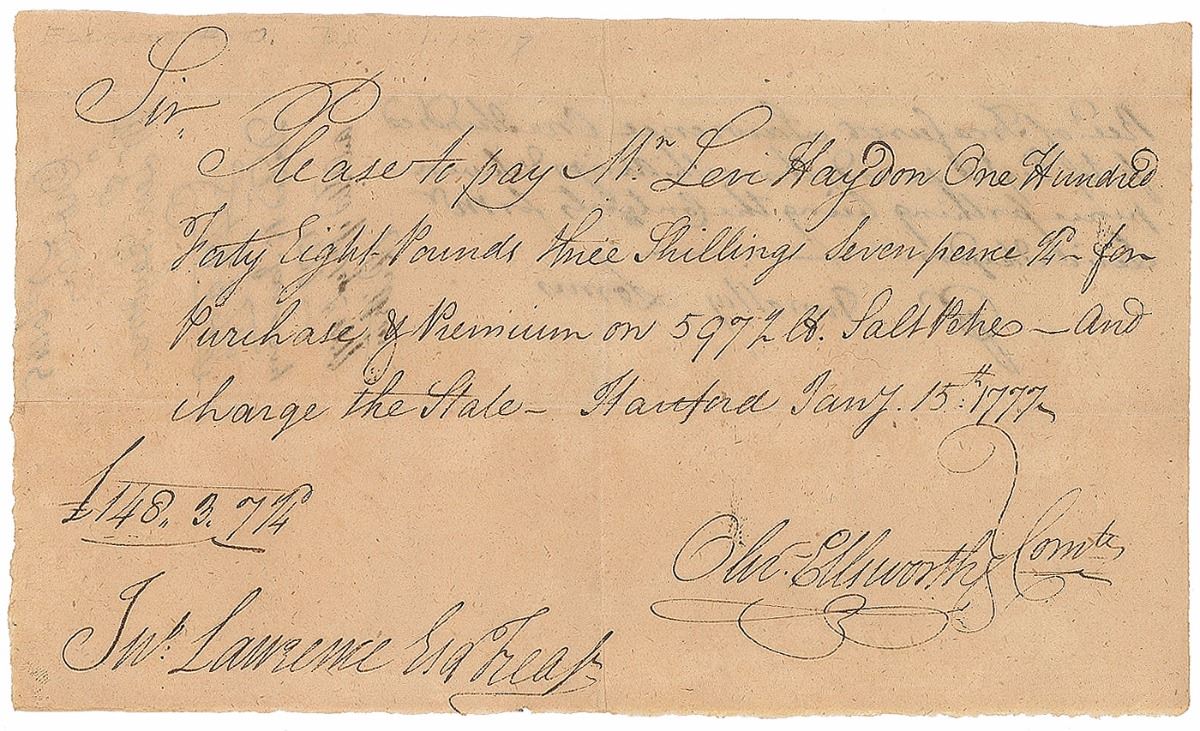 Sir,
Please to pay Mr Levi Haydon One Hundred
Forty Eight Pounds three Shillings Seven pence ¼ for
Purchase & Premium on 5972 lb. Salt Petre – and
charge the State – Hartford Jany. 15th. 1777
£148,, 3. 7¼
Olivr. Ellsworth Comtee
Jno. Lawrence Esqr Treasr